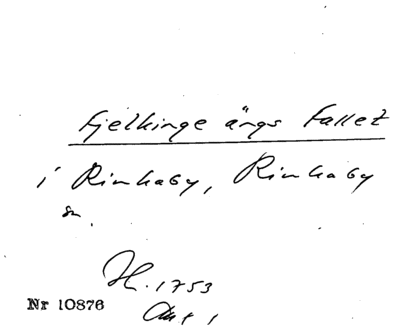 Fjelkinge ängs Fallet
i Rinkaby, Rinkaby
sn.
H. 1753
Akt 1
Nr 10876